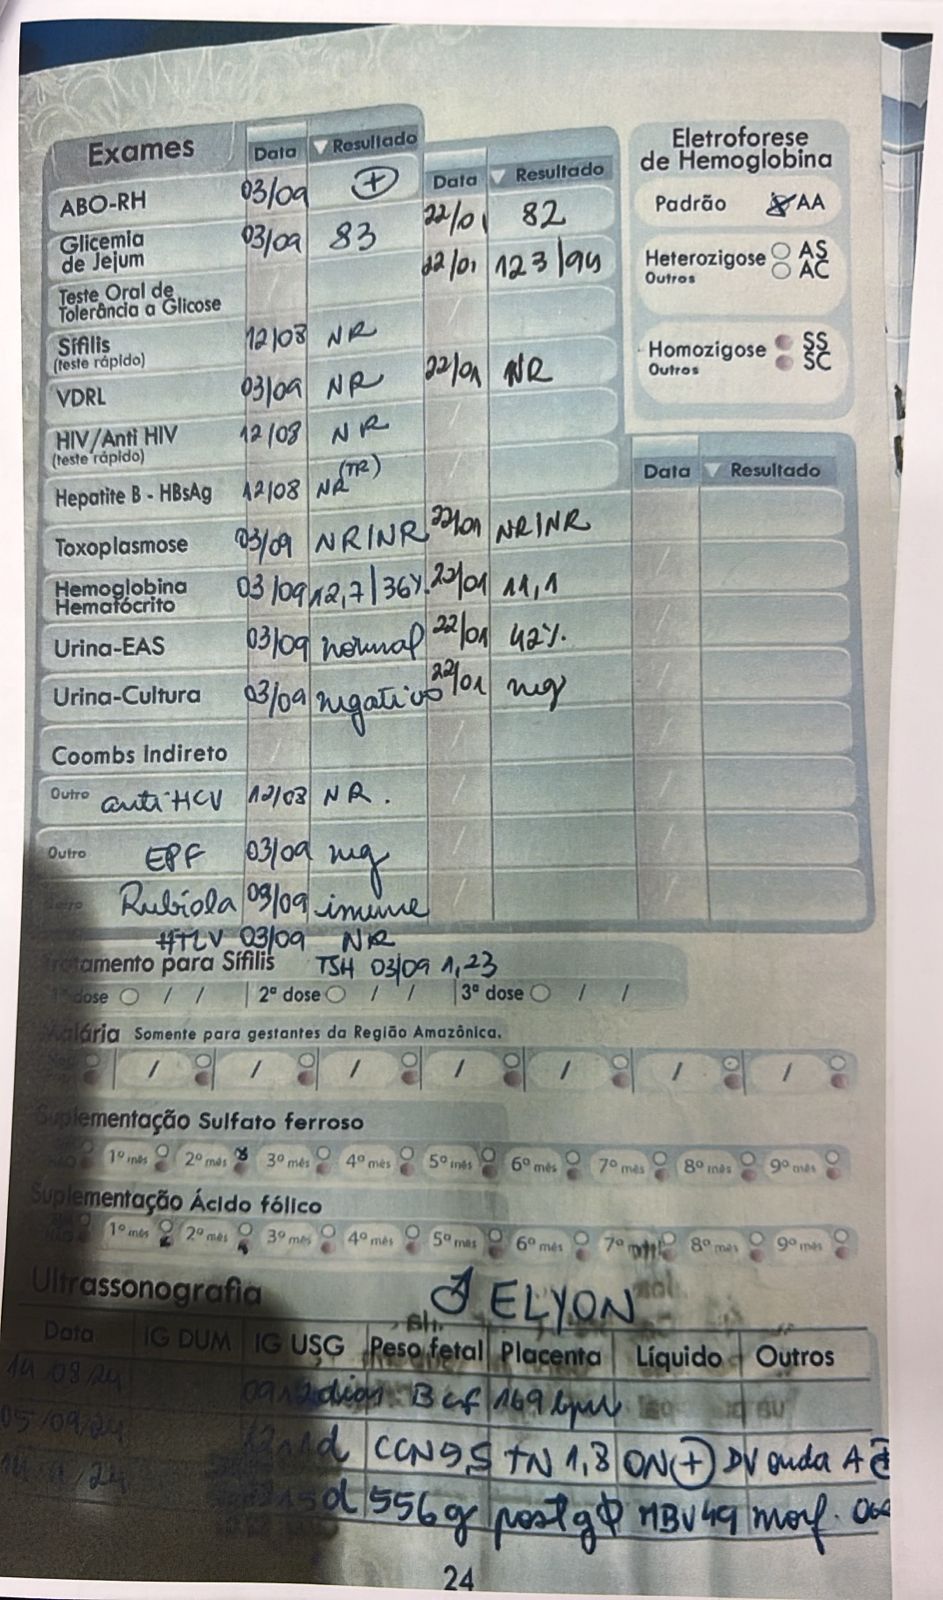 Exames Data Resultado Data Resultado
ABO-RH 03/09 + 22/01 82
Glicemia de Jejum 03/09 83 22/01 123/94
Teste Oral de Tolerância a Glicose / /
Sífilis (teste rápido) 12/08 NR
VDRL 03/09 NR 22/01 NR
HIV/Anti HIV (teste rápido) 12/08 NR /
Hepatite B - HBsAg 12/08 NR (TR) /
Toxoplasmose 03/09 NR/NR 22/01 NR/NR
Hemoglobina Hematócrito 03/09 12,7/36% 22/01 11,1
Urina-EAS 03/09 normal 22/01 42%
Urina-Cultura 03/09 negativo 22/01 neg
Coombs Indireto / /
Outro anti-HCV 12/08 NR. /
Outro EPF 03/09 neg /
Rubíola 09/09 imune /
HTLV 03/09 NR
Eletroforese
de Hemoglobina
Padrão AA
Heterozigose AS
Outros AC
Homozigose SS
Outros SC
Data Resultado
Tratamento para Sífilis TSH 03/09 1,23
1ª dose / / 2ª dose / / 3ª dose / /
Malária Somente para gestantes da Região Amazônica.
/ / / / / / /
Suplementação Sulfato ferroso
1º mês 2º mês 3º mês 4º mês 5º mês 6º mês 7º mês 8º mês 9º mês
Suplementação Ácido fólico
1º mês 2º mês 3º mês 4º mês 5º mês 6º mês 7º mês 8º mês 9º mês
Ultrassonografia ♂ ELYON
Data IG DUM IG USG Peso fetal Placenta Líquido Outros
14 08 24 dias Bcf 169 bpm
05/09/24 12s1d CCN 9,5 TN 1,8 ON + DV onda A +
/24 5d 556g post gφ MBV 49 morf.
24